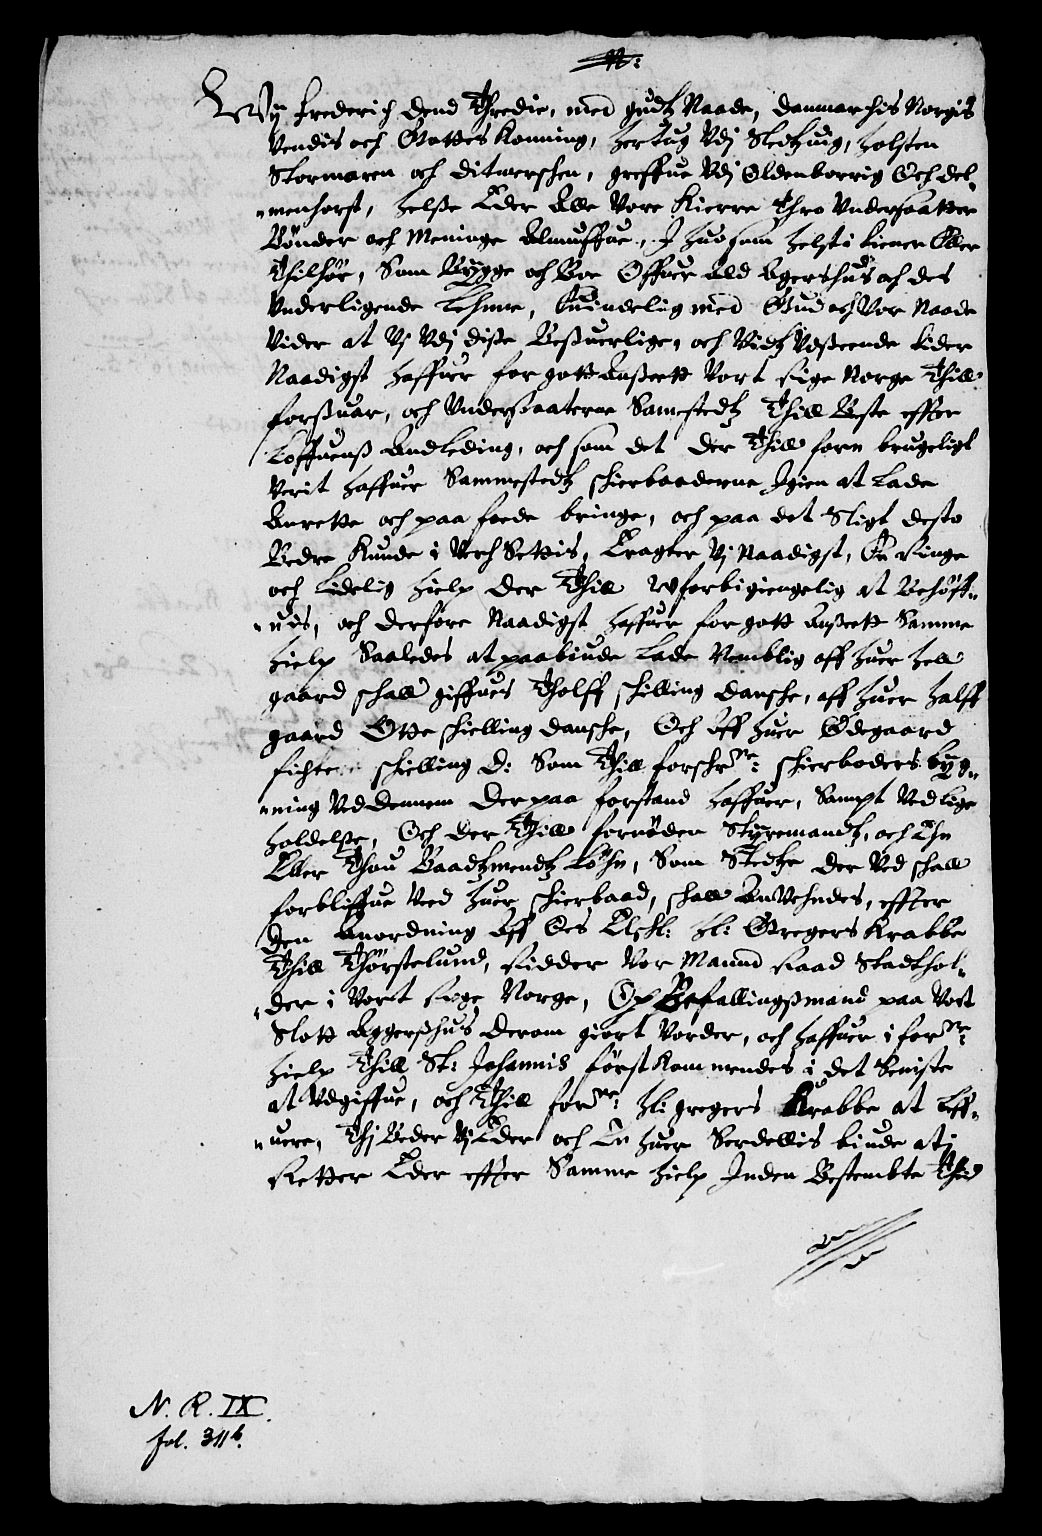 N:
Wy Frederich dend Thredie, med gudtz Naade, Danmarchis Norgis
Vendis och Gottes Konning, Hertug Vdj Sletzuig, Holsten
Stormaren och Ditmerschen, greffue Vdj Oldenborrig Och Del-
menhorst, Helße Eder Alle Vore Kierre Thro Vndersaatter
Bönder och Meninge Almuffue, J huosom helst i kiener Eller
Thilhör, Som Bygge och Boe Offuer Ald Agershus och des
Vnderligende Lehnne, Kuindelig med Gud och Vor Naade
Vider at Vj Vdj diße Beßuerlige, och Vidtz Vdßeende tider
Naadigst Haffuer for gott Anßeett Vort Rige Norge Thill
forßuar, och Vnderßaaterne Samestedtz Thill Beste effter
Loffuenß Andleding, och som det der Thill forn brugeligt
Verit Haffuer Sammestedtz Schierbaaderne Jgien at Lade
Anrette och paa foede bringe, och paa det Sligt desto
Bedre Kunde i Verch Settis, Eragter Vj Naadigst, En Ringe
och Lidelig Hielp der Thill Vforbigiengelig at Behöff-
uis, och derfore Naadigst Haffuer for gott Anßeett Samme
Hielp Saaledes at paabiude Lade Nemblig aff huer Hell
gaard schall giffues Tholff schilling Dansche, aff huer Halff
gaard Otte schielling dansche, Och Aff huer Ödegaard
schielling D: Som Thill forschr:ne schierboders byg-
ning Ved dennem der paa forstand Haffuer, Sampt Ved lige
Holdelße, Och der Thill fornöden Styremandtz, och Ehn
Eller Thou Baadtzmendtz Löhn, Som Stedtze der Ved schall
forbliffue Ved huer schierbaad, schall AnVehndes, effter
den Anordning Aff Oes Elskl: Hl: Gregers Krabbe
Thill Thörstelund, Ridder Vor Mannd Raad Stadthol-
der i Vort Rige Norge, Och Befallingßmand paa Vort
Slott Aggerßhus derom giort Vorder, och Haffuer i for:ne
Hielp Thill St: Johannis först Kommendes i det Seniste
at Vdgiffue, och Thill for:ne Hl: gregers Krabbe at Leff-
uere, Thj Beder Vj Eder och En huer Serdellis biude at i
Retter Eder effter Samme Hielp Jnden Bestembte Thid
N. R. IX.
fol. 311 b.